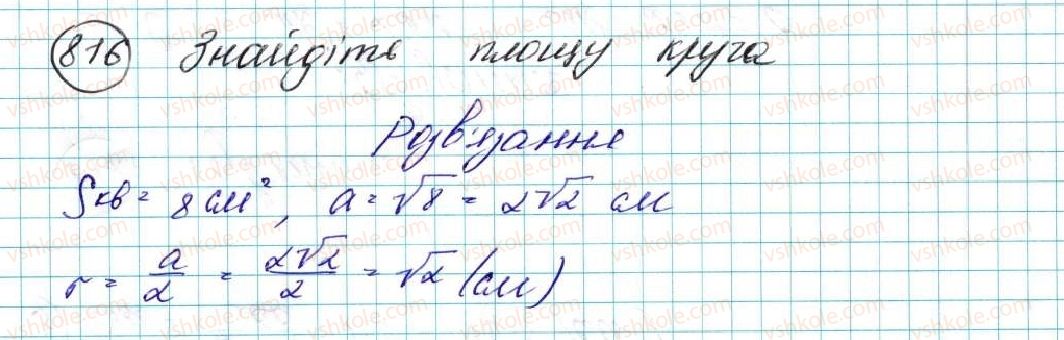 816 Знайдіть площу круга
Розв'язання
Sкв = 8 см², a = √8 = 2√2 см
r = a/2 = 2√2/2 = √2 (см)